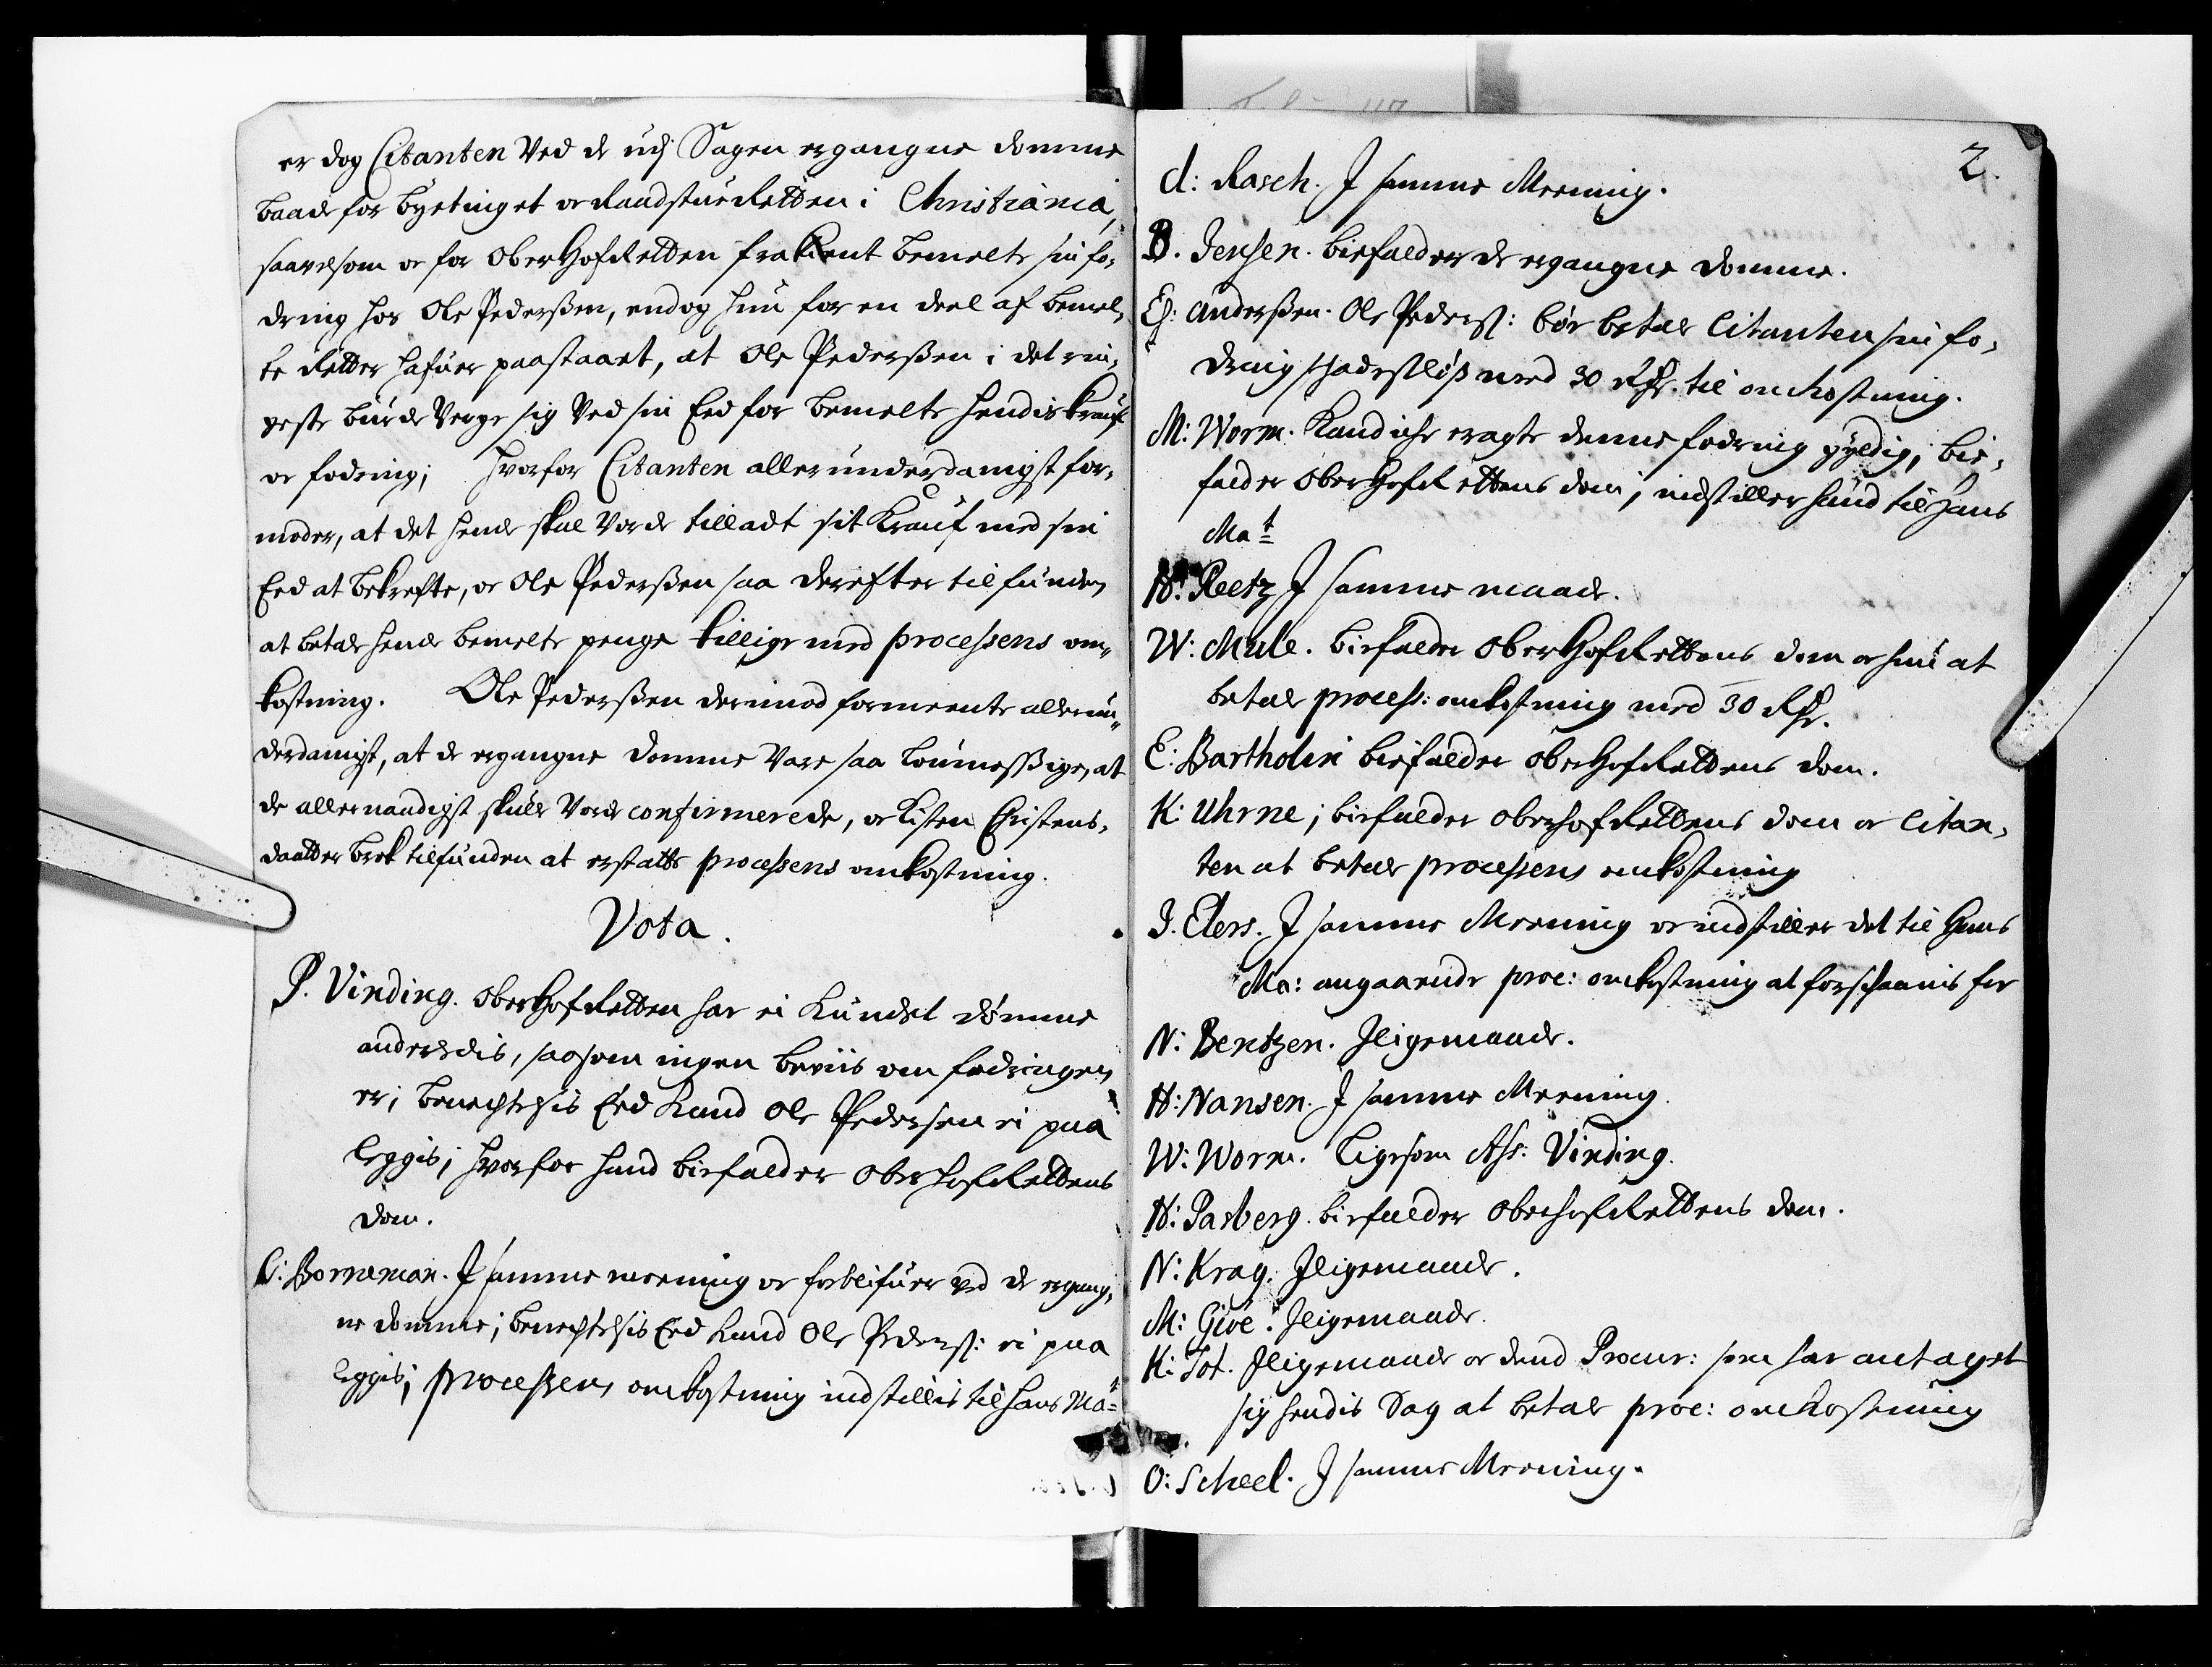 er dog Citanten Ved de udj Sagen ergangne domme
baade for byetinget oc Raadstue Retten i Christiania,
saavelsom oc for Ober Hof Retten frakient bemelte sin fo-
dring hos Ole Pederßen, endog hun for en deel af bemel-
te Retter hafuer paastaaet, at Ole Pederßen i det rin-
geste burde Verge sig Ved sin Eed for bemelte hendis krauf
oc fodring; hvorfor Citanten allerunderdanigst for-
moder, at det hende skal Vorde tilladt sit Krauf med sin
Eed at bekrefte, oc Ole Pederßen saa derefter tilfunden
at betale hende bemelte penge tillige med processens om-
kostning. Ole Pederßen derimod formeente allerun-
derdanigst, at de ergangne domme Vare saa loumeßige, at
de allernaadigst skulle Vorde confirmerede, oc Kisten Christens-
daatter brek tilfunden at erstatte processens omkostning.
Vota.
P. Vinding. Ober Hof Retten har ei kundet dømme
anderledis, saasom ingen beviis om fodringen
er; benechtelsis Eed kand Ole Pedersen ei paa
leggis; hvorfor hand biefalder Ober Hof Rettens
dom.
C: Borneman. I samme meening oc forblifuer ved de ergang-
ne domme; benechtelsis Eed kand Ole Peders: ei paa
leggis; processens omkostning indstillis til hans Ma:t
2.
d: Rasch. I samme Meening.
B. Jensen. biefalder de ergangne domme.
Ch: Anderßen. Ole Peders: bør betale Citanten sin fo-
dring schadesløs med 30 Rdr. til omkostning.
M: Worm. Kand iche eragte denne fodring gyldig, bie-
falder Ober Hof Rettens dom, indstiller hund til Hans
Ma:t
H: Reetz I samme maade.
W: Mule. biefalder Ober Hof Rettens dom oc hun at
betale process: omkostning med 30 Rdr.
C: Bartholin biefalder Ober Hof Rettens dom.
K: Uhrne; biefalder Oberhof Rettens dom oc Citan-
ten at betale processens omkostning
J. Elers. I samme Meening oc indstiller det til Hans
Ma: angaaende proc: omkostning at forschaanis for
N: Bentzen. Iligemaade.
H: Nansen. I samme Meening.
W: Worm. Ligesom Ass: Vinding.
H: Parberg. biefalder Oberhof Rettens dom.
N: Krag. Iligemaade.
M: Giöe. Iligemaade.
K: Tot. Iligemaade oc dend Procur: som har antaget
sig hendis Sag at betale proc: omkostning
O: Scheel. I samme Meening.